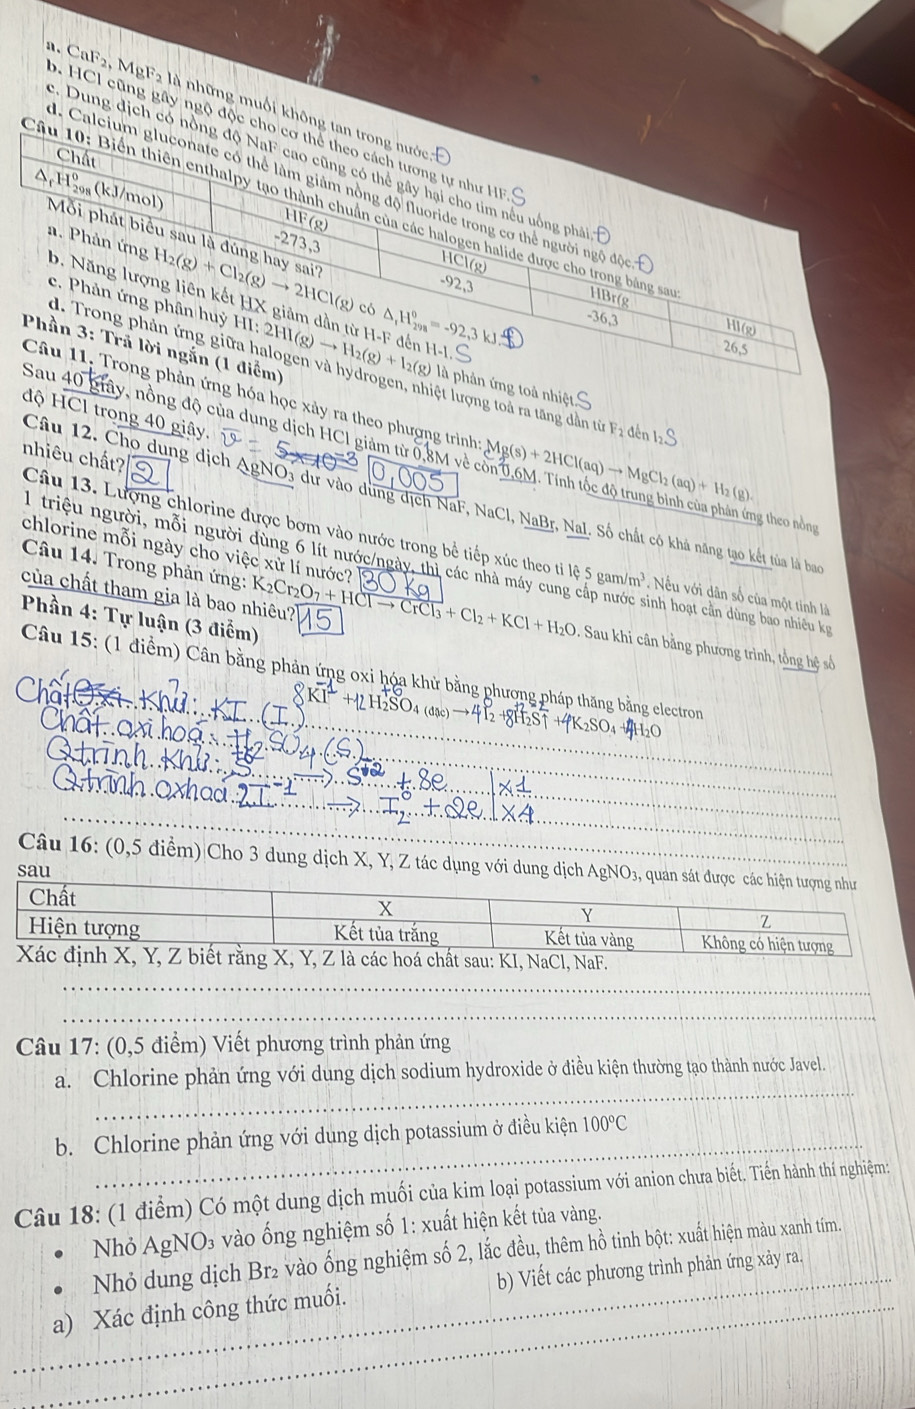 a. CaF₂, MgF₂ là những muối không tan trong nước. Đ
b. HCl cũng gây ngộ độc cho cơ thể theo cách tương tự như HF. S
c. Dung dịch có nồng độ NaF cao cũng có thể gây hại cho tim nếu uống phải. Đ
d. Calcium gluconate có thể làm giảm nồng độ fluoride trong cơ thể người ngộ độc. Đ
Câu 10: Biến thiên enthalpy tạo thành chuẩn của các halogen halide được cho trong bảng sau:
Chất HF(g) HCl(g) HBr(g HI(g)
ΔfH⁰₂₉₈ (kJ/mol) -273,3 -92,3 -36,3 26,5
Mỗi phát biểu sau là đúng hay sai?
a. Phản ứng H₂(g) + Cl₂(g) → 2HCl(g) có ΔrH⁰₂₉₈ = -92,3 kJ.
b. Năng lượng liên kết HX giảm dần từ H-F đến H-I. S
c. Phản ứng phân huỷ HI: 2HI(g) → H₂(g) + I₂(g) là phản ứng toả nhiệt. S
d. Trong phản ứng giữa halogen và hydrogen, nhiệt lượng toả ra tăng dần từ F₂ đến I₂ S
Phần 3: Trả lời ngắn (1 điểm)
Câu 11. Trong phản ứng hóa học xảy ra theo phương trình: Mg(s) + 2HCl(aq) → MgCl₂ (aq) + H₂ (g).
Sau 40 giây, nồng độ của dung dịch HCl giảm từ 0,8M về còn 0,6M. Tính tốc độ trung bình của phản ứng theo nồng
độ HCl trong 40 giây. v̄ = 5×10⁻³ 0,005
Câu 12. Cho dung dịch AgNO₃ dư vào dung dịch NaF, NaCl, NaBr, NaI. Số chất có khả năng tạo kết tủa là bao
nhiêu chất? 2
Câu 13. Lượng chlorine được bơm vào nước trong bể tiếp xúc theo tỉ lệ 5 gam/m³. Nếu với dân số của một tỉnh là
1 triệu người, mỗi người dùng 6 lít nước/ngày, thì các nhà máy cung cấp nước sinh hoạt cần dùng bao nhiêu kg
chlorine mỗi ngày cho việc xử lí nước? 30 kg
Câu 14. Trong phản ứng: K₂Cr₂O₇ + HCl → CrCl₃ + Cl₂ + KCl + H₂O. Sau khi cân bằng phương trình, tổng hệ số
của chất tham gia là bao nhiêu? 15
Phần 4: Tự luận (3 điểm)
Câu 15: (1 điểm) Cân bằng phản ứng oxi hóa khử bằng phương pháp thăng bằng electron
8KI⁻¹ + 12 H₂S⁺⁶O₄ (đặc) → 4I₂⁰ + 8H₂S⁻²↑ + 4K₂SO₄ + 4H₂O
Chất Khử: KI (I)
Chất oxi hoá: H₂SO₄ (S)
Qtrình Khử: S → S⁺² + 8e | x1
Qtrình oxhoá 2I⁻¹ → I₂⁰ + 2e | x4
Câu 16: (0,5 điểm) Cho 3 dung dịch X, Y, Z tác dụng với dung dịch AgNO₃, quán sát được các hiện tượng như
sau
Chất X Y Z
Hiện tượng Kết tủa trắng Kết tủa vàng Không có hiện tượng
Xác định X, Y, Z biết rằng X, Y, Z là các hoá chất sau: KI, NaCl, NaF.
Câu 17: (0,5 điểm) Viết phương trình phản ứng
a. Chlorine phản ứng với dung dịch sodium hydroxide ở điều kiện thường tạo thành nước Javel.
b. Chlorine phản ứng với dung dịch potassium ở điều kiện 100°C
Câu 18: (1 điểm) Có một dung dịch muối của kim loại potassium với anion chưa biết. Tiến hành thí nghiệm:
• Nhỏ AgNO₃ vào ống nghiệm số 1: xuất hiện kết tủa vàng.
• Nhỏ dung dịch Br₂ vào ống nghiệm số 2, lắc đều, thêm hồ tinh bột: xuất hiện màu xanh tím.
a) Xác định công thức muối. b) Viết các phương trình phản ứng xảy ra.